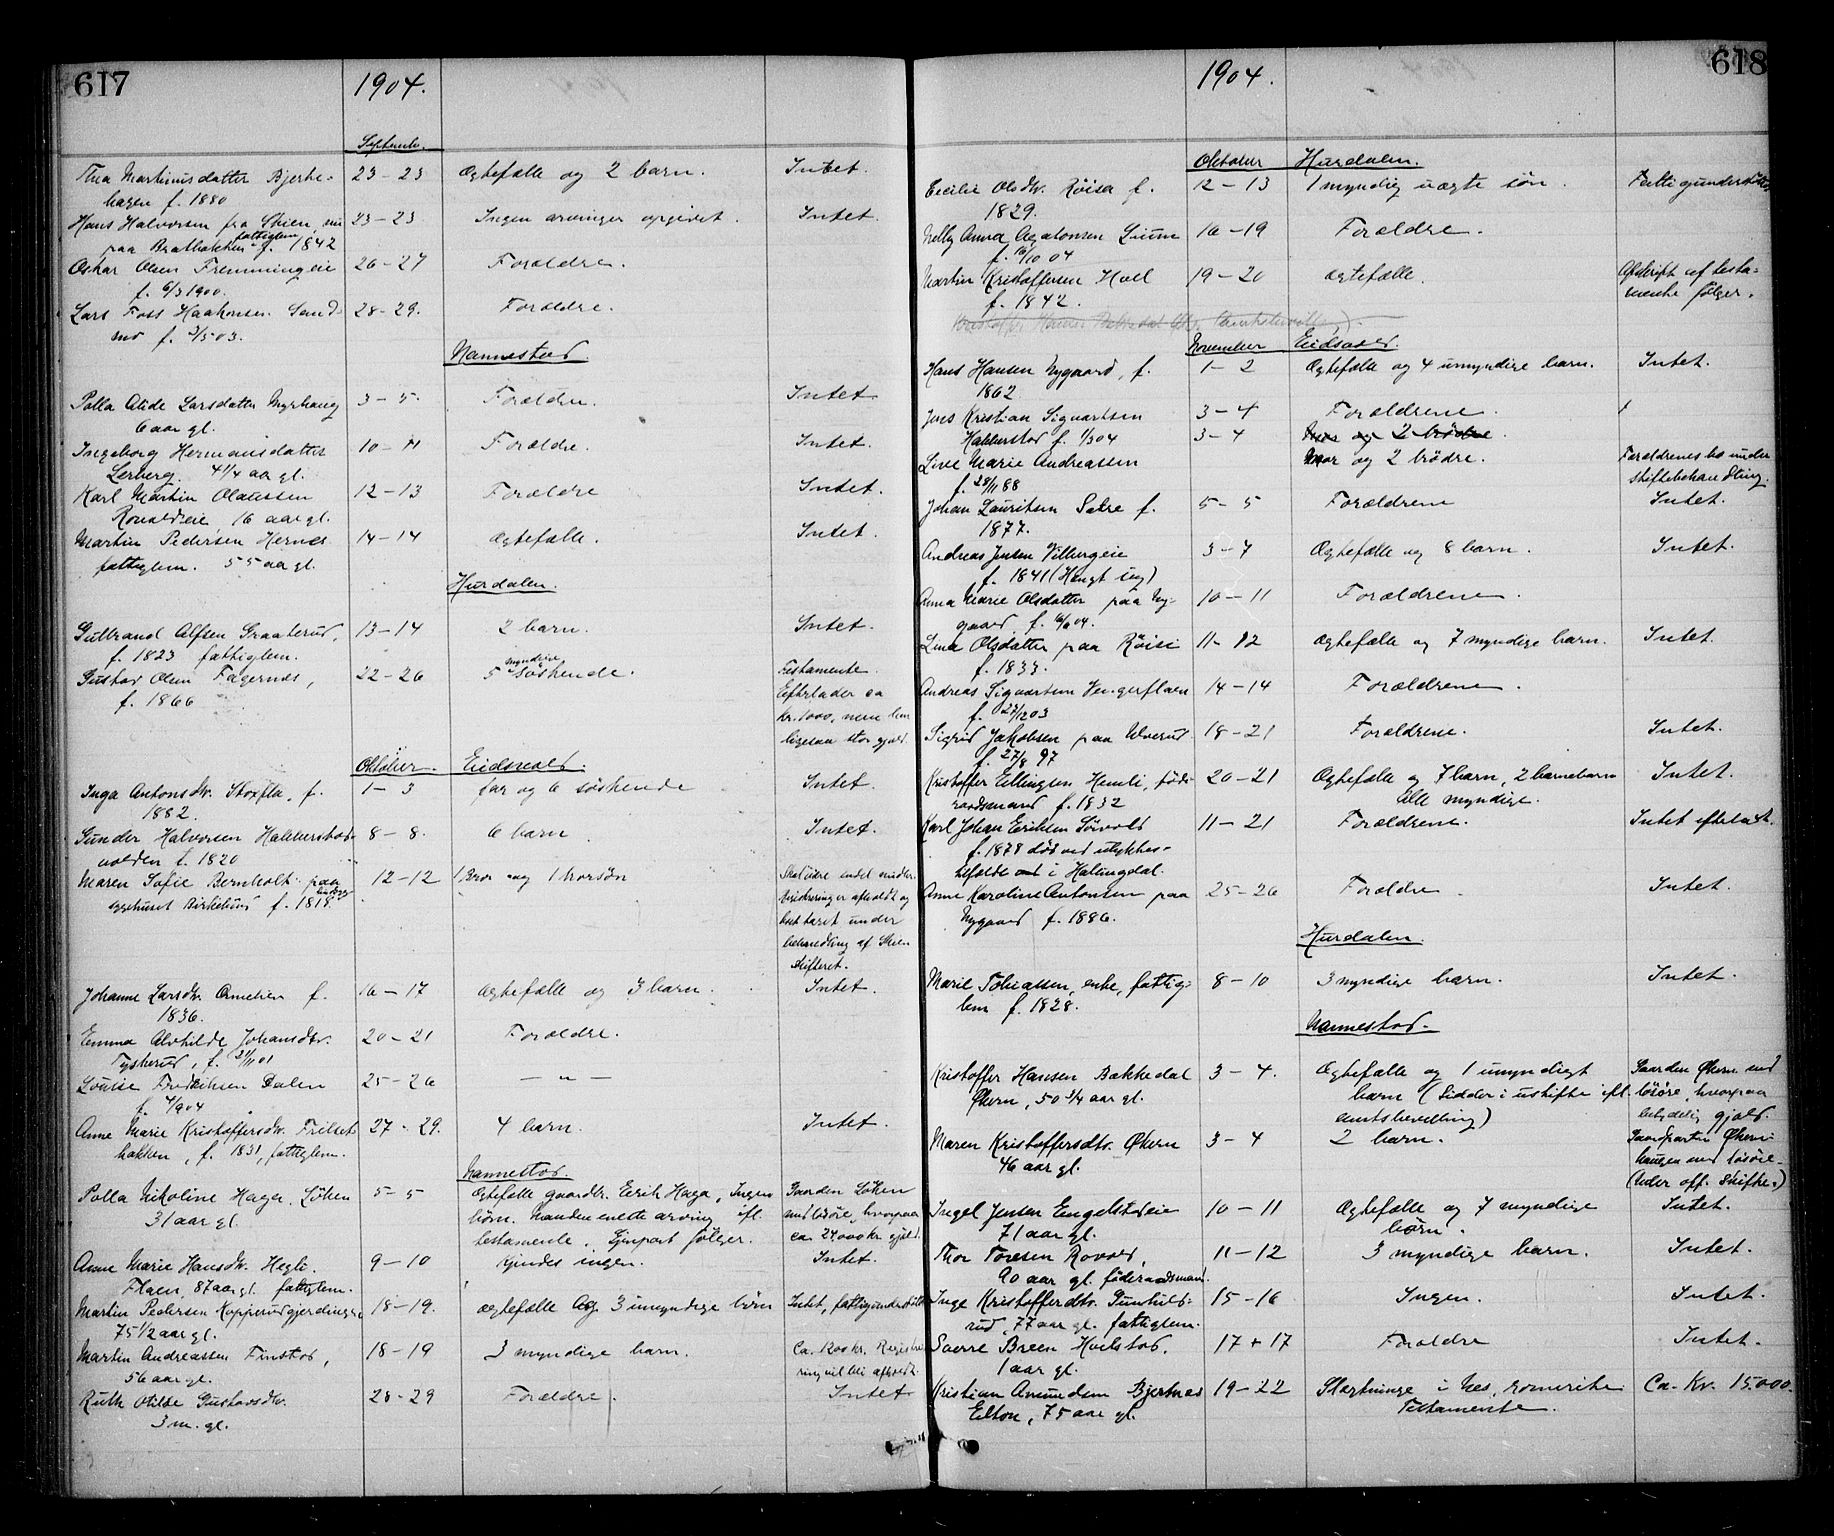 617
1904.
September.
Thea Martinusdatter Bjerke- 23-23 Ægtefælle og 2 barn. Intet.
hagen f. 1880
Hans Halvorsen fra Skien, nu 23-23 Ingen arvinger opgivet. Intet.
paa Brathakken f. 1842
fattiglem
Oskar Olsen Fremmingeie 26-27 Forældre.
f. 6/3 1900.
Lars Foss Haakonsen Sand- 28-29. Forældre.
f. 2/5 03.
Nannestad.
Palla Alide Larsdatter Myrhaug 3-5 Forældre. Intet
6 aar gl.
Ingeborg Hermansdatter 10-11 Forældre. Intet.
Lerberg. 4 1/4 aar gl.
Karl Martin Olaussen 12-13 Forældre Intet.
16 aar gl.
Martin Pedersen Hernes 14-14 Ægtefælle. Intet.
fattiglem. 55 aar gl.
Hurdalen.
Gulbrand Alfsen Graaterud, 13-14 2 barn. Intet.
f. 1823 fattiglem.
Gustav Olsen Fagernes, 22-26 5 myndige søskende. Testamente.
f. 1866 Efterlader ca
kr. 1000, men
ligesaa stor gjæld.
Oktober. Eidsvold.
Inga Antonsdtr. Storfla, f. 1-3 far og 6 søskende Intet.
1882.
Gunder Halvorsen Habberstad- 8-8. 6 barn Intet.
volden f. 1820
Maren Sofie Bernholt paa 12-12 1 Bror og 1 brorsøn
Birkelund f. 1818.
boet taget under
behandling af Skien
skifteret.
Johanne Larsdtr. f. 16-17 Ægtefælle og 3 barn. Intet.
1836.
Emma Alvhilde Johansdtr. 20-21 Forældre.
Tyskerud, f. 21/11 01
Louise Fredriksen Dalen 25-26 — " —
f. 4/9 04
Anne Marie Kristoffersdtr. Frilset- 27-29. 4 barn. Intet.
bakken, f. 1831, fattiglem.
Nannestad.
Palla Nikoline Haga, Løken 5-5 Ægtefælle gaardbr. Eerik Haga, Ingen Gaarden Løken
31 aar gl. børn. Manden eneste arving ifl. med løsøre, hvorpaa
testamente. Gjenpart følger. ca. 24000 kr. gjæld.
Anne Marie Hansdtr. Hegli- 9-10 Kjendes ingen. Intet.
Flaen, 87 aar gl. fattiglem.
Martin Pedersen Kopperudgjerdingen 18-19. Ægtefælle og 3 umyndige børn Intet, fattigunderstøttet
75 1/2 aar gl.
Martin Andreassen Finstad, 18-19 3 myndige barn. Ca. 1200 kr. Registre-
56 aar gl. ring vil bli afholdt.
Ruth Otilde Gustavsdtr. 28-29 Forældre. Intet
3 m. gl.
618
1904.
Oktober Hurdalen.
Cecilie Olsdtr. Røisa f. 12-13 1 myndig uægte søn.
1829.
Nelly Anna Agatonsen 16-19 Forældre.
f. 16/10 04
Martin Kristoffersen Hoel 19-20 Ægtefælle. Afskrift af testa-
f. 1842. mente følger.
November Eidsvold.
Hans Hansen Nygaard, f. 1-2 Ægtefælle og 4 umyndige barn. Intet.
1862
Jens Kristian Sigvartsen 3-4 Forældrene.
Habberstad f. 1/3 04 3-4 Mor og 2 brødre.
Line Marie Andreassen Mor og 2 brødre. Forældrenes bo under
f. 28/11 88 skiftebehandling.
Johan Lauritsen Sætre f. 5-5 Forældrene Intet.
1877.
Andreas Jensen Vilbergeie 3-7 Ægtefælle og 8 barn. Intet.
f. 1841 (Hængt sig)
Anna Marie Olsdatter paa Ny- 10-11 Forældrene.
gaard, f. 6/6 04.
Lina Olsdatter paa Røisi 11-12 Ægtefælle og 7 myndige barn. Intet.
f. 1833.
Andreas Sigvartsen Vengerflaen 14-14 Forældrene.
f. 27/12 03
Sigrid Jakobsen paa Ulverud 18-21 Forældrene. Intet.
f. 27/8 97
Kristoffer Ellingsen Hemli, føde- 20-21 Ægtefælle og 7 barn, 2 barnebarn Intet.
raadsmand f. 1832 alle myndige.
Karl Johan Eriksen Sørvold 11-21 Forældrene. Intet efterladt.
f. 1878 død ved ulykkes-
tilfælde i Hallingdal.
Anne Karoline Antonsen paa 25-26 Forældre Intet.
Nygaard f. 1886.
Hurdalen.
Marie Tobiassen, enke, fattig- 8-10 3 myndige barn. Intet.
lem f. 1828.
Nannestad.
Kristoffer Hansen Bakkedal 3-4. Ægtefælle og 1 umyndigt Gaarden Økern med
Økern, 50 3/4 aar gl. barn (Sidder i uskifte ifl. løsøre, hvorpaa
amtsbevilling) betydelig gjæld.
Maren Kristoffersdtr. Økern 3-4 2 barn. Gaardparten Økern-
46 aar gl. haugen med løsøre.
(Under off. Skifte.)
Ingel Jensen Engelstadeie 10-11 Ægtefælle og 7 myndige Intet.
71 aar gl. børn.
Thor Toresen Rovold, 11-12 3 myndige barn. Intet.
90 aar gl. føderaadsmand.
Inge Kristofferdtr. Gunhild- 15-16 Ingen. Intet.
rud, 77 aar gl. fattiglem.
Sverre Breen Hvelstad. 17+17 Forældre Intet.
1 aar gl.
Kristian Amundsen Bjertnes 19-22 Slægtninge i Nes, Romerike Ca. Kr. 15.000.
Elton, 75 aar gl. Testamente.